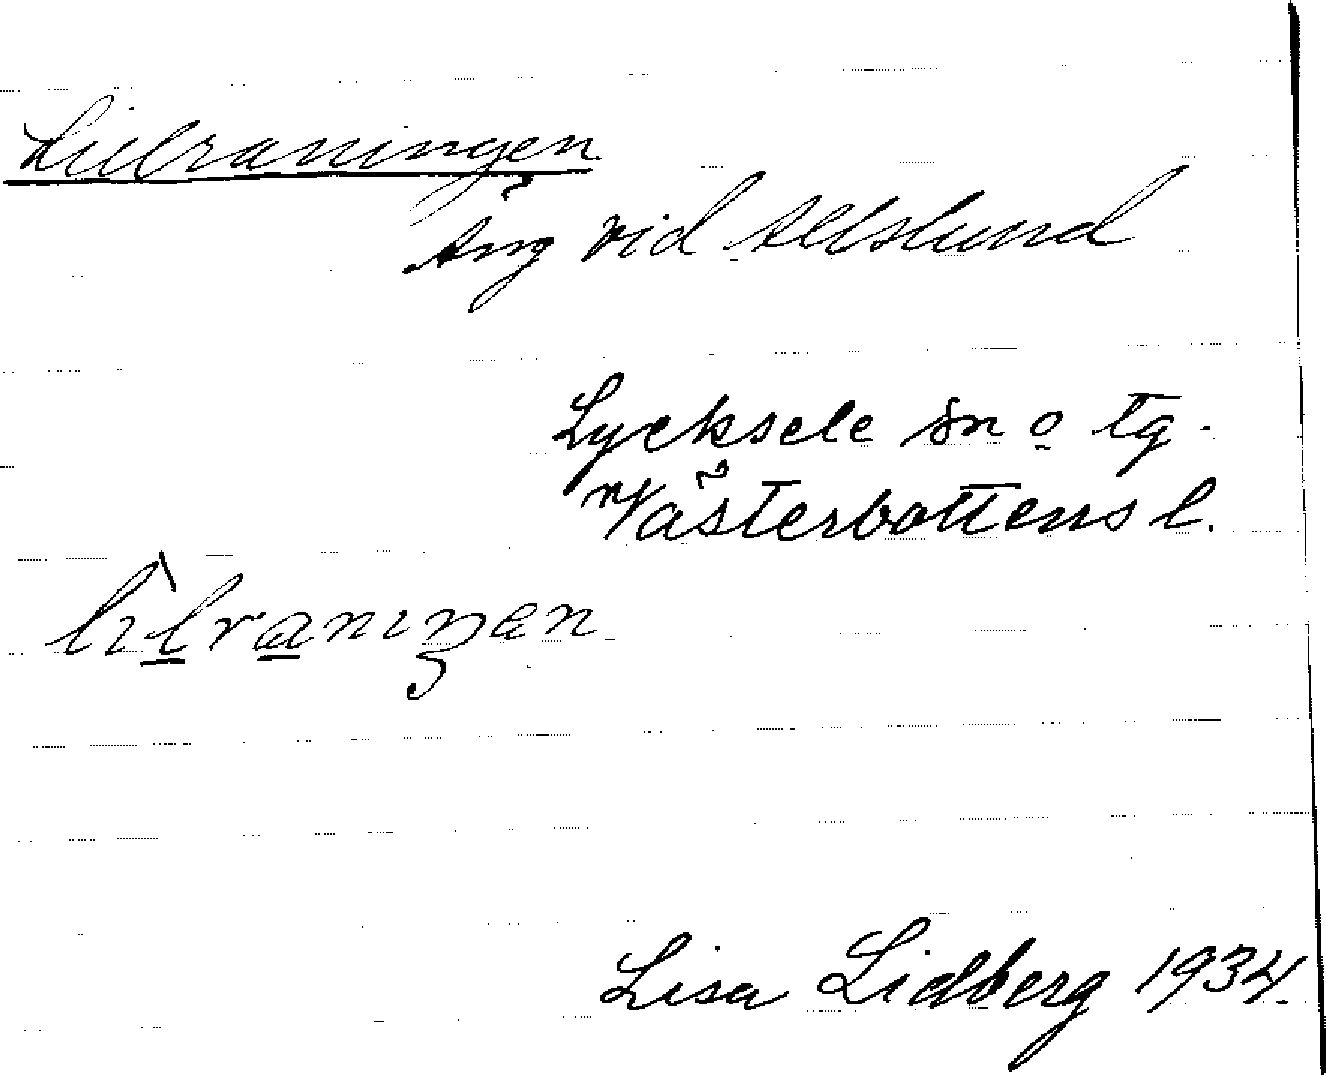 Lillraningen
Äng vid Alslund
Lycksele sn o tg.
Västerbottens l.
Lisa Lidberg 1934.